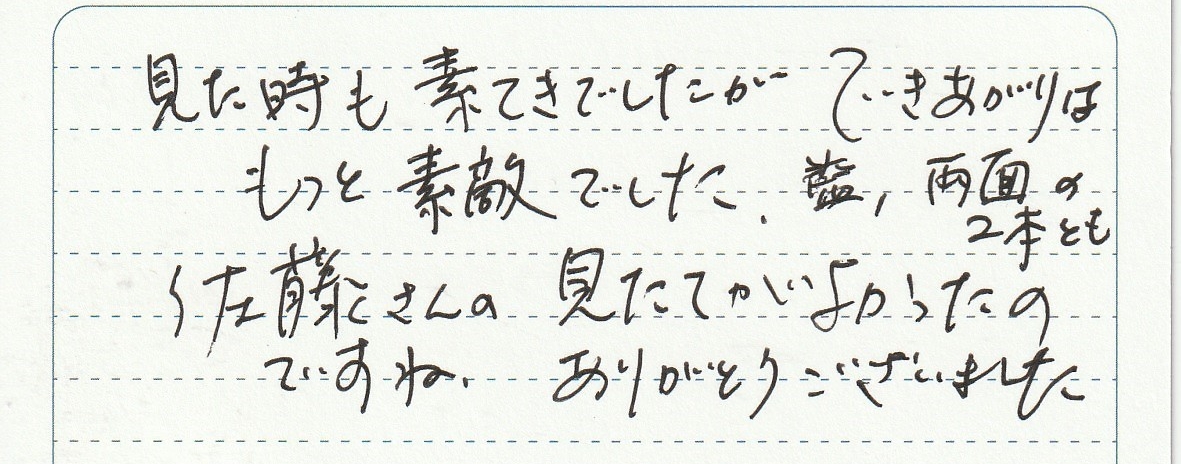 見た時も素てきでしたが できあがりは
もっと素敵でした、藍,両面の
2本とも
佐藤さんの 見たてがよかったの
ですね、ありがとうございました